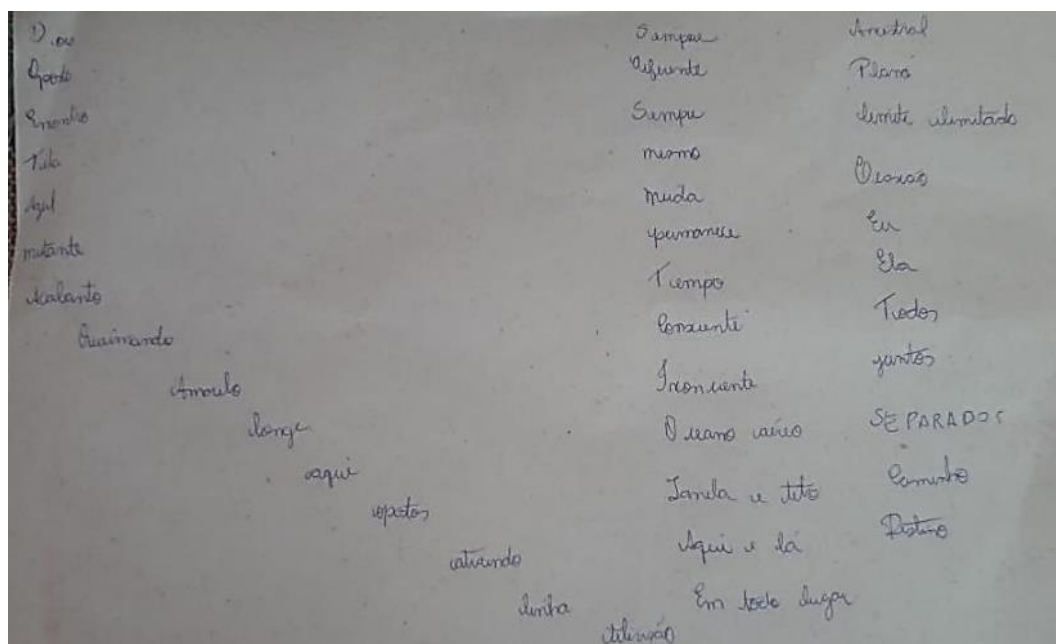 Encontro
Tela
Azul
mutante
Acalanto
Queimando
Amarelo
longe
aqui
opostos
ativando
linha
Sempre
Diferente
Sempre
mesmo
muda
permanece
Tempo
Consciente
Inconsciente
Oceano aéreo
Janela e teto
Aqui e lá
Em todo lugar
Ancestral
Plano
limite ilimitado
Ocasião
Eu
Ela
Todos
juntos
SEPARADOS
Caminho
Destino